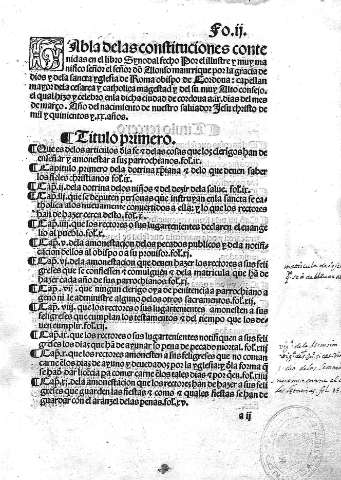 Fo.ij.
Tabla delas constituciones conte
nidas en el libro Synodal fecho Por el illustre y muy ma
nifico señor el señor dõ Alonso manrrique por la gracia de
dios y dela sancta yglesia de Roma obispo de Cordoua: capellan
mayor dela cesarea y catholica magestad y del su muy Alto consejo.
el qual hizo y celebro enla dicha ciudad de cordoua a.ir. dias del mes
de março. Año del nacimiento de nuestro saluador Jesu christo de
mil y quinientos y.rr.años.
¶Titulo primero.
¶Que es delos articulos dla fe y delas cosas que los clerigos han de
enseñar y amonestar a sus parrochianos. fol.ir.
¶Capitulo primero dela dotrina xp̃iana y delo que deuen saber
los fieles christianos. fol.ir.
¶Cap.ij. dela dotrina delos niños y del dezir dela salue. fol.ir.
¶Cap.iij. que se deputen personas que instruyan enla sancta fe ca
tholica alos nueuamente conuertidos a ella: y lo que los rectores
han de hazer cerca desto. fol.r.
¶Cap.iiij. que los rectores o sus lugartenientes declaren el euange
lio al pueblo. fol.r.
¶Cap.v. dela amonestacion delos pecados publicos y dela notifi
cacion dellos al obispo o a su prouisor. fo.ri.
¶Cap.vj. dela amonestacion que deuen hazer los rectores a sus feli
greses que se confiessen y comulguẽ y dela matricula que hã de
hazer cada año de sus parrochianos. fol.rj.
¶Cap.vij. que ningun clerigo oya de penitencia a parrochiano a
geno ni le administre alguno delos otros sacramentos. fol.rij.
¶Cap.viij. que los rectores o sus lugartenientes amonesten a sus
feligreses que cumplan los testamentos y del tiempo que los de
uen cumplir. fol.rij.
¶Cap.ir. que los rectores o sus lugartenientes notifiquen a sus feli
greses los dias que hã de ayunar so pena de pecado mortal. fol.riij
¶Cap.r. que los rectores amonesten a sus feligreses que no coman
carne ẽlos dias de ayuno y deuedados por la yglesia y dla forma q̃
se ha d̃ dar licẽcia pa comer carne ẽlos tales dias y por q̃en. fol.riiij
¶Cap.rj. dela amonestacion que los rectores han de hazer a sus feli
greses que guarden las fiestas y como y quales fiestas se han de
guardar con el aranzel delas penas. fol.rv.
a ij